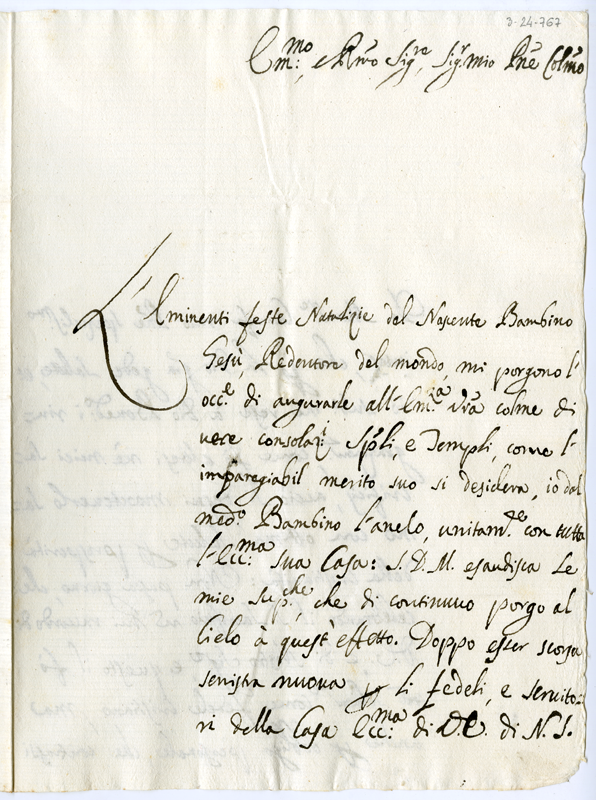 3-24-767
Em:mo e Rmo Sigre, Sigr mio Pne Colmo
L'Eminenti feste Natalizie del Nascente Bambino
Gesù Redentore del mondo, mi porgono l'
occe di augurarle all'Em:za Vra colme di
vere consolazi Spli, e Templi, come l'
imparegiabil merito suo si desidera, io dal
medo Bambino l'anelo, unitamte con tutta
l'Ecc:ma sua Casa: S. D. M. esaudisca le
mie supche, che di continuo porgo al
Cielo à quest'effetto. Doppo esser scorsa
senistra nuova li fedeli, e servito:
ri della Casa Ecc:ma di di N. S.